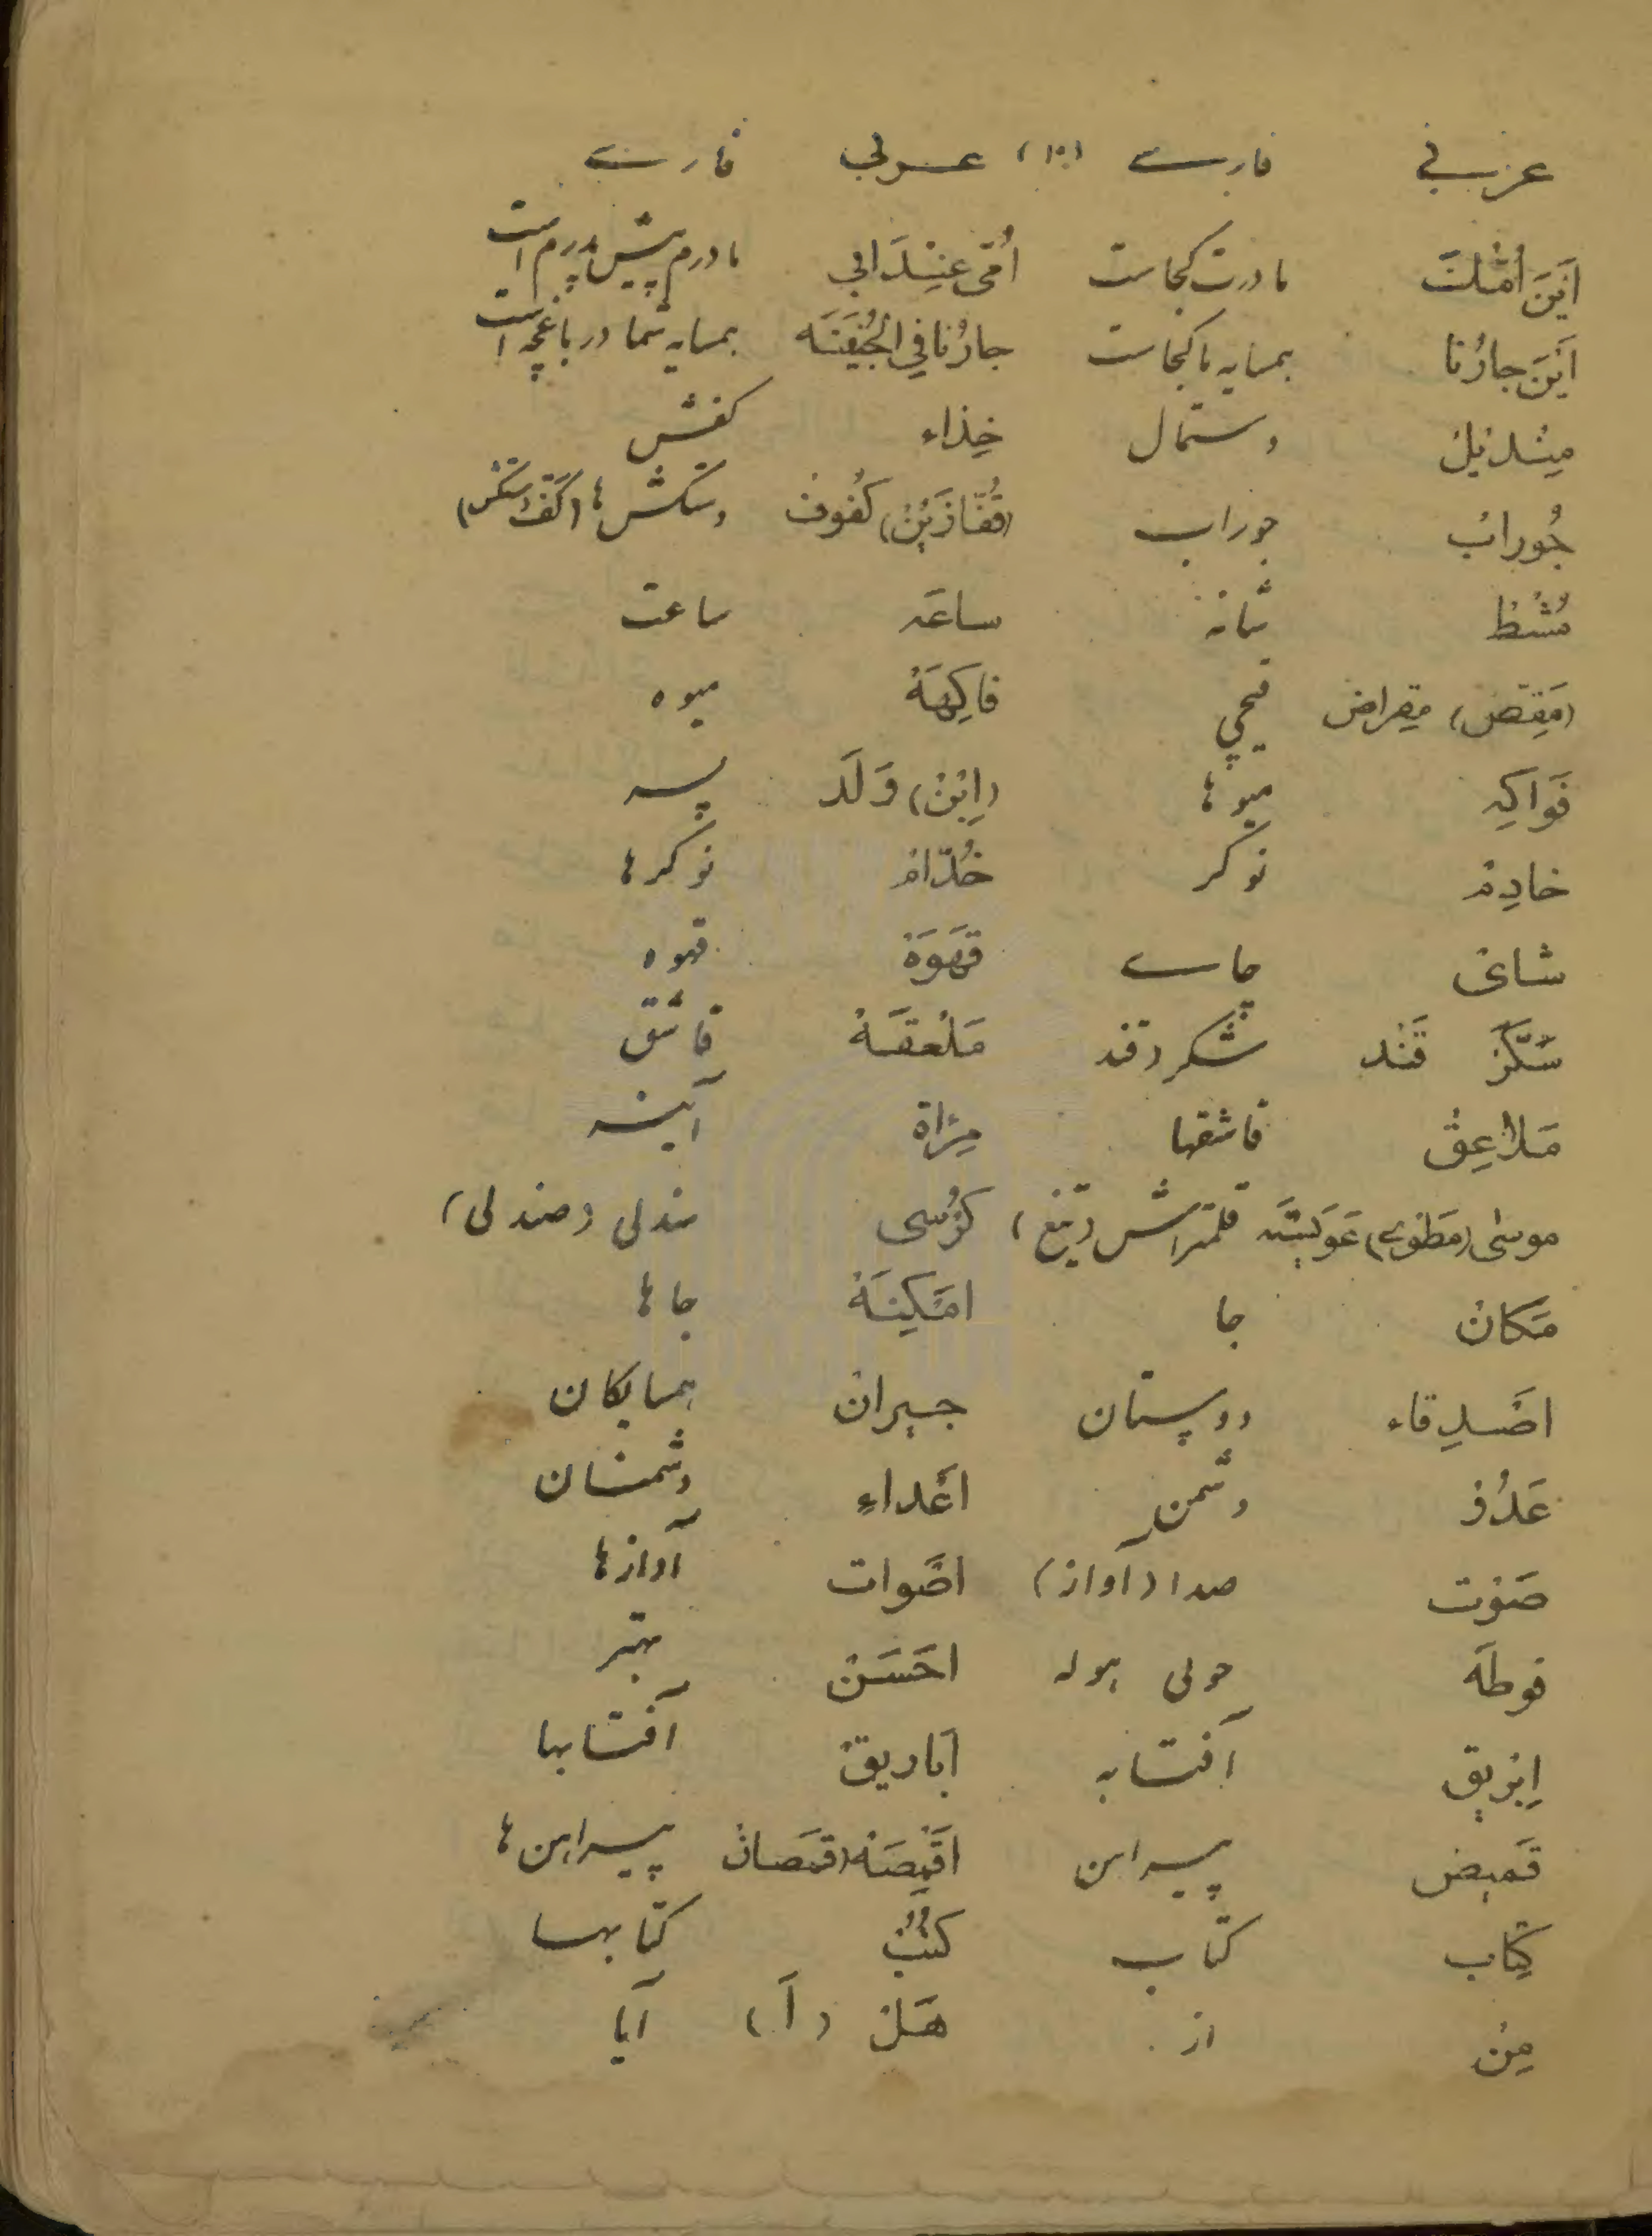 عربي فارسے (۱۰) عربي فارسے
اَيْنَ اُمُّكَ مادرت کجاست اُمّى عِنْدَ ابي مادرم پیش پدرم است
اَيْنَ جارُنا همسایه ما کجاست جارُنا في الجُنَيْنَه همسایه شما در باغچه است
مِنْديلْ دستمال حِذاء کفش
جُورابْ جوراب (قُفّازَيْنْ) كُفُوفْ دستکش ها (کف دستکش)
مُشْطْ شانه ساعَه ساعت
(مَقَصّ) مِقراض قیچی فاكِهَهْ میوه
فَواكِه میوها (اِبْنْ) وَلَد پسر
خادِمْ نوکر خُدّامْ نوکرها
شاى چاے قَهْوَهْ قهوه
سُكَّرْ قَنْد شکر (قند مَلْعَقَهْ قاشق
مَلاعِقْ قاشقها مِرْاة آینه
موسٰى (مَطْوى) قلمتراش (تیغ) كُرْسى سندلی (صندلی)
مَكانْ جا امْكِنَهْ جاها
اصْدِقاء دوستان جيرانْ همسایکان
عَدُوْ دشمن اعْداءِ دشمنان
صَوْت صدا (آواز) اصْوات آوازها
فوطَه حولی هوله احْسَنْ بهتر
اِبْريق آفتابه اَباريقْ آفتابها
قَميص پیراهن اقْمِصَهْ (قمْصانْ پیراهن ها
كِتاب کتاب كُتُبْ کتابها
مِنْ از هَلْ (اَ) آیا